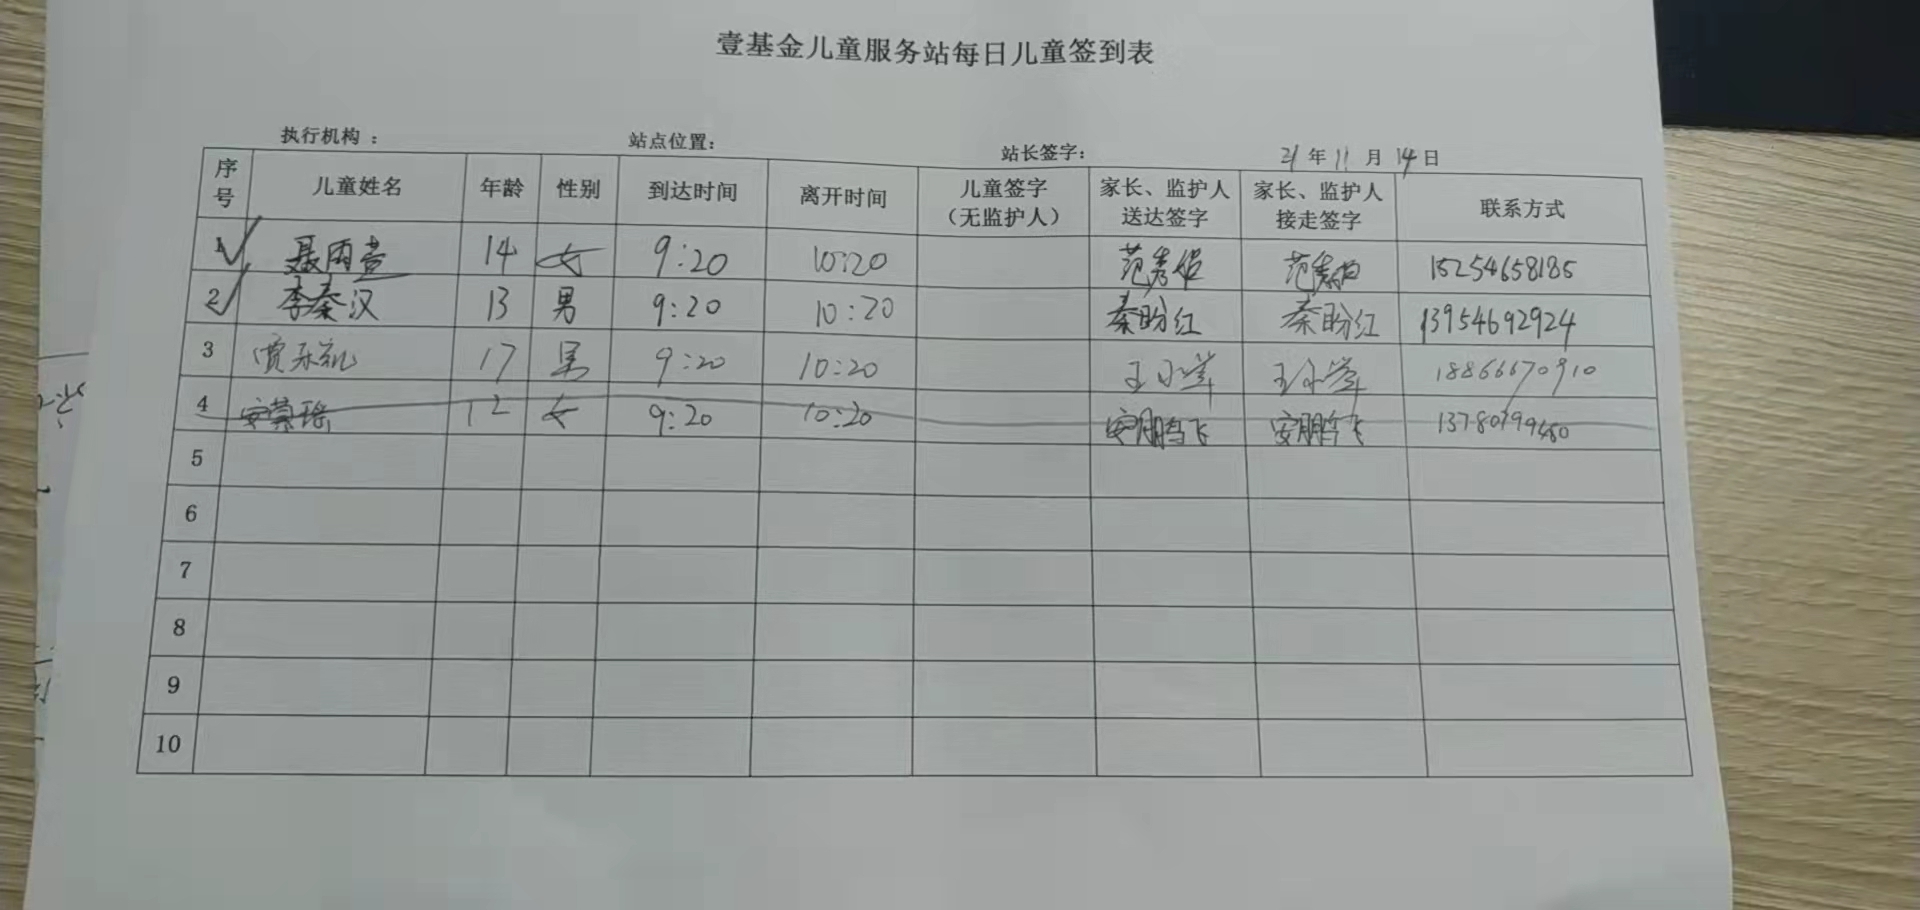 壹基金儿童服务站每日儿童签到表
执行机构： 站点位置： 站长签字： 21年11月14日
序号 儿童姓名 年龄 性别 到达时间 离开时间 儿童签字（无监护人） 家长、监护人送达签字 家长、监护人接走签字 联系方式
1 聂雨萱 14 女 9:20 10:20 范秀 范秀 15254658185
2 李秦汉 13 男 9:20 10:20 秦盼红 秦盼红 13954692924
3 贾乐凯 17 男 9:20 10:20 王小 王小 18866670910
4 安慕瑶 12 女 9:20 10:20 安鹏飞 安鹏飞
5
6
7
8
9
10